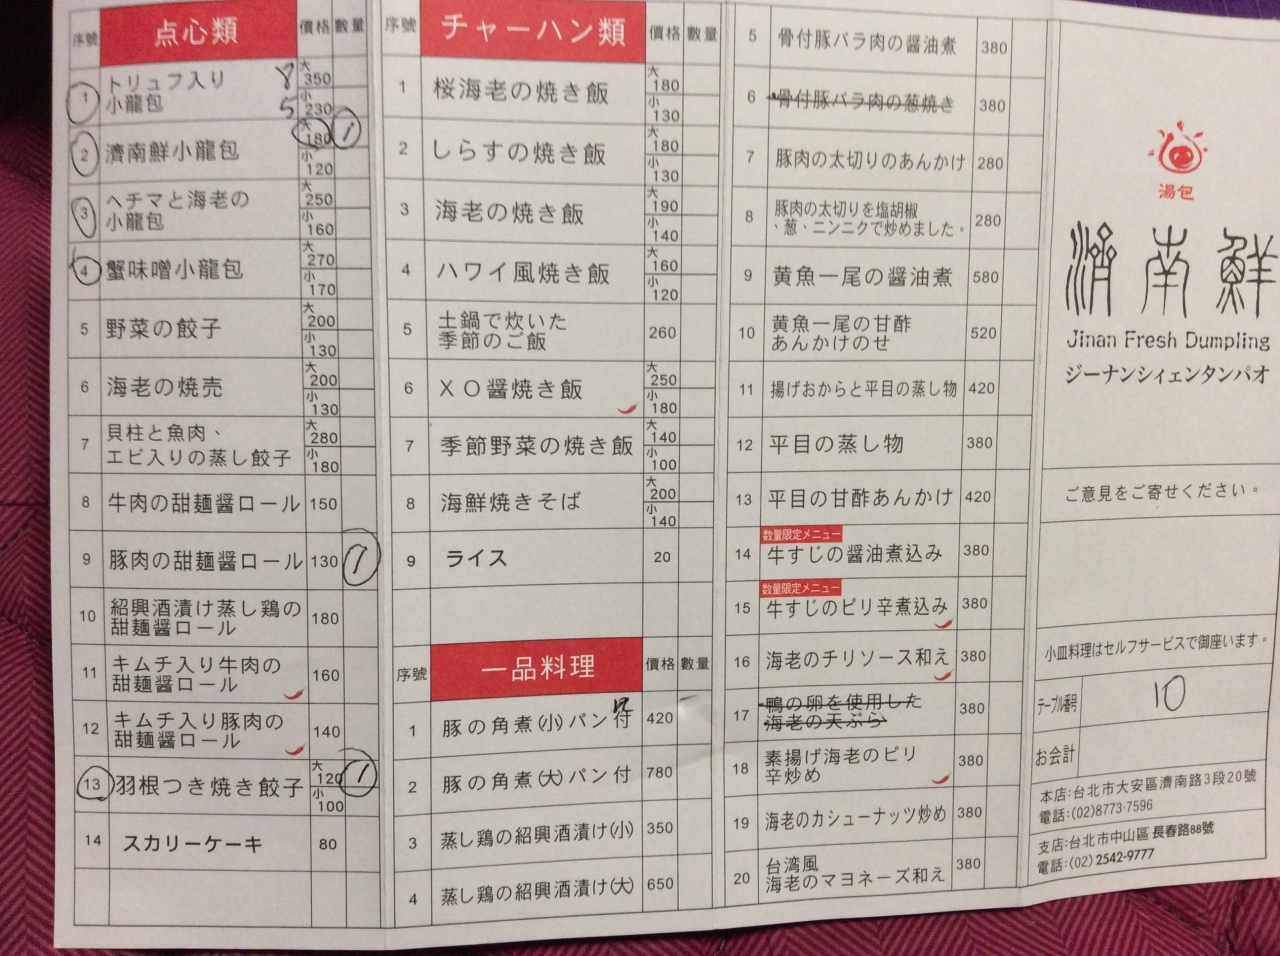 序號 点心類 價格 數量
1 トリュフ入り 小龍包 大 350 小 230 8 5
2 濟南鮮小龍包 大 180 小 120 1
3 ヘチマと海老の 小龍包 大 250 小 160
4 蟹味噌小龍包 大 270 小 170
5 野菜の餃子 大 200 小 130
6 海老の焼売 大 200 小 130
7 貝柱と魚肉、 エビ入りの蒸し餃子 大 280 小 180
8 牛肉の甜麺醤ロール 150
9 豚肉の甜麺醤ロール 130 1
10 紹興酒漬け蒸し鶏の 甜麺醤ロール 180
11 キムチ入り牛肉の 甜麺醤ロール 160
12 キムチ入り豚肉の 甜麺醤ロール 140
13 羽根つき焼き餃子 大 120 小 100 1
14 スカリーケーキ 80
序號 チャーハン類 價格 數量
1 桜海老の焼き飯 大 180 小 130
2 しらすの焼き飯 大 180 小 130
3 海老の焼き飯 大 190 小 140
4 ハワイ風焼き飯 大 160 小 120
5 土鍋で炊いた 季節のご飯 260
6 XO醤焼き飯 大 250 小 180
7 季節野菜の焼き飯 大 140 小 100
8 海鮮焼きそば 大 200 小 140
9 ライス 20
序號 一品料理 價格 數量
1 豚の角煮(小)パン付 420
2 豚の角煮(大)パン付 780
3 蒸し鶏の紹興酒漬け(小) 350
4 蒸し鶏の紹興酒漬け(大) 650
5 骨付豚バラ肉の醤油煮 380
6 骨付豚バラ肉の葱焼き 380
7 豚肉の太切りのあんかけ 280
8 豚肉の太切りを塩胡椒 、葱、ニンニクで炒めました。 280
9 黄魚一尾の醤油煮 580
10 黄魚一尾の甘酢 あんかけのせ 520
11 揚げおからと平目の蒸し物 420
12 平目の蒸し物 380
13 平目の甘酢あんかけ 420
数量限定メニュー
14 牛すじの醤油煮込み 380
数量限定メニュー
15 牛すじのピリ辛煮込み 380
16 海老のチリソース和え 380
17 鴨の卵を使用した 海老の天ぷら 380
18 素揚げ海老のピリ 辛炒め 380
19 海老のカシューナッツ炒め 380
20 台湾風 海老のマヨネーズ和え 380
湯包
濟南鮮
Jinan Fresh Dumpling
ジーナンシィェンタンパオ
ご意見をご寄せください。
小皿料理はセルフサービスで御座います。
テーブル番号 10
お会計
本店:台北市大安區濟南路3段20號
電話:(02)8773-7596
支店:台北市中山區長春路88號
電話:(02)2542-9777